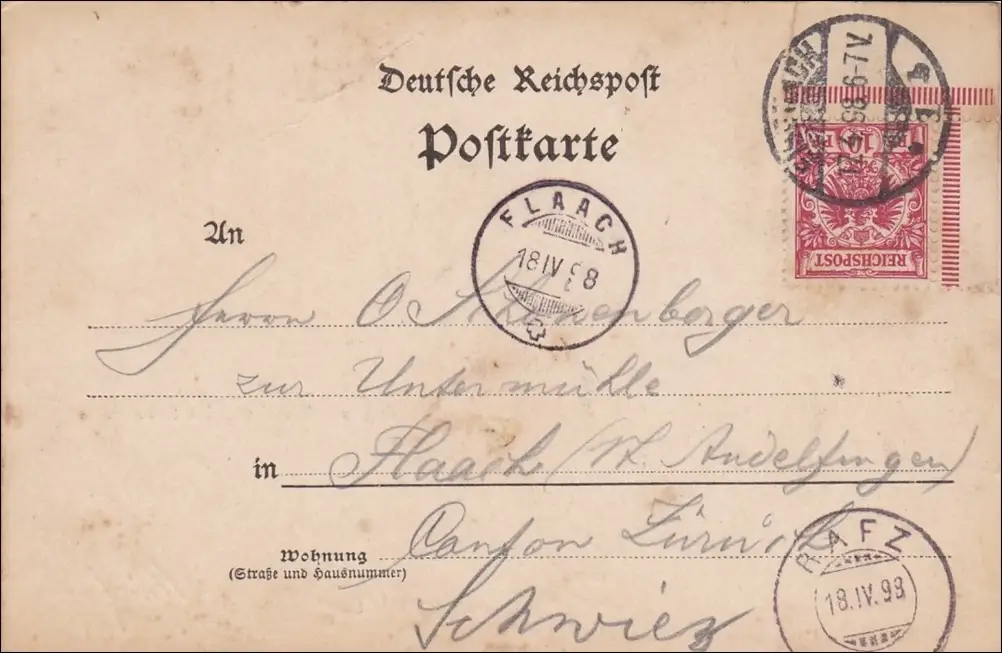 Deutsche Reichspost
Postkarte
17.4.98. 6-7V.
10
REICHSPOST
FLAACH
18 IV 98
An
Herrn O Schönenberger
zur Untermühle
in Flaach (Kt. Andelfingen)
Wohnung
(Straße und Hausnummer)
Canton Zürich
Schwiez
RAFZ
18.IV.98